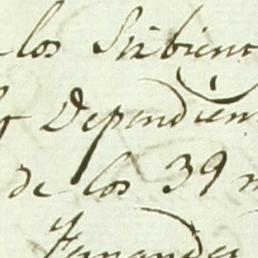 los Sirbient
Dependien
de los 39
Fernandez